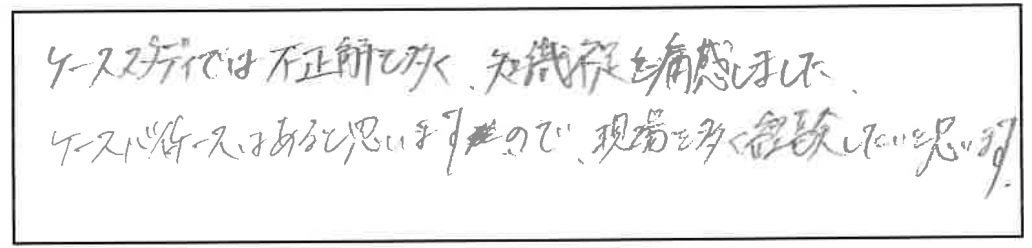 ケーススタディでは不正解も多く、知識不足を痛感しました、
ケースバイケースはあると思いますので、現場を多く経験したいと思います。